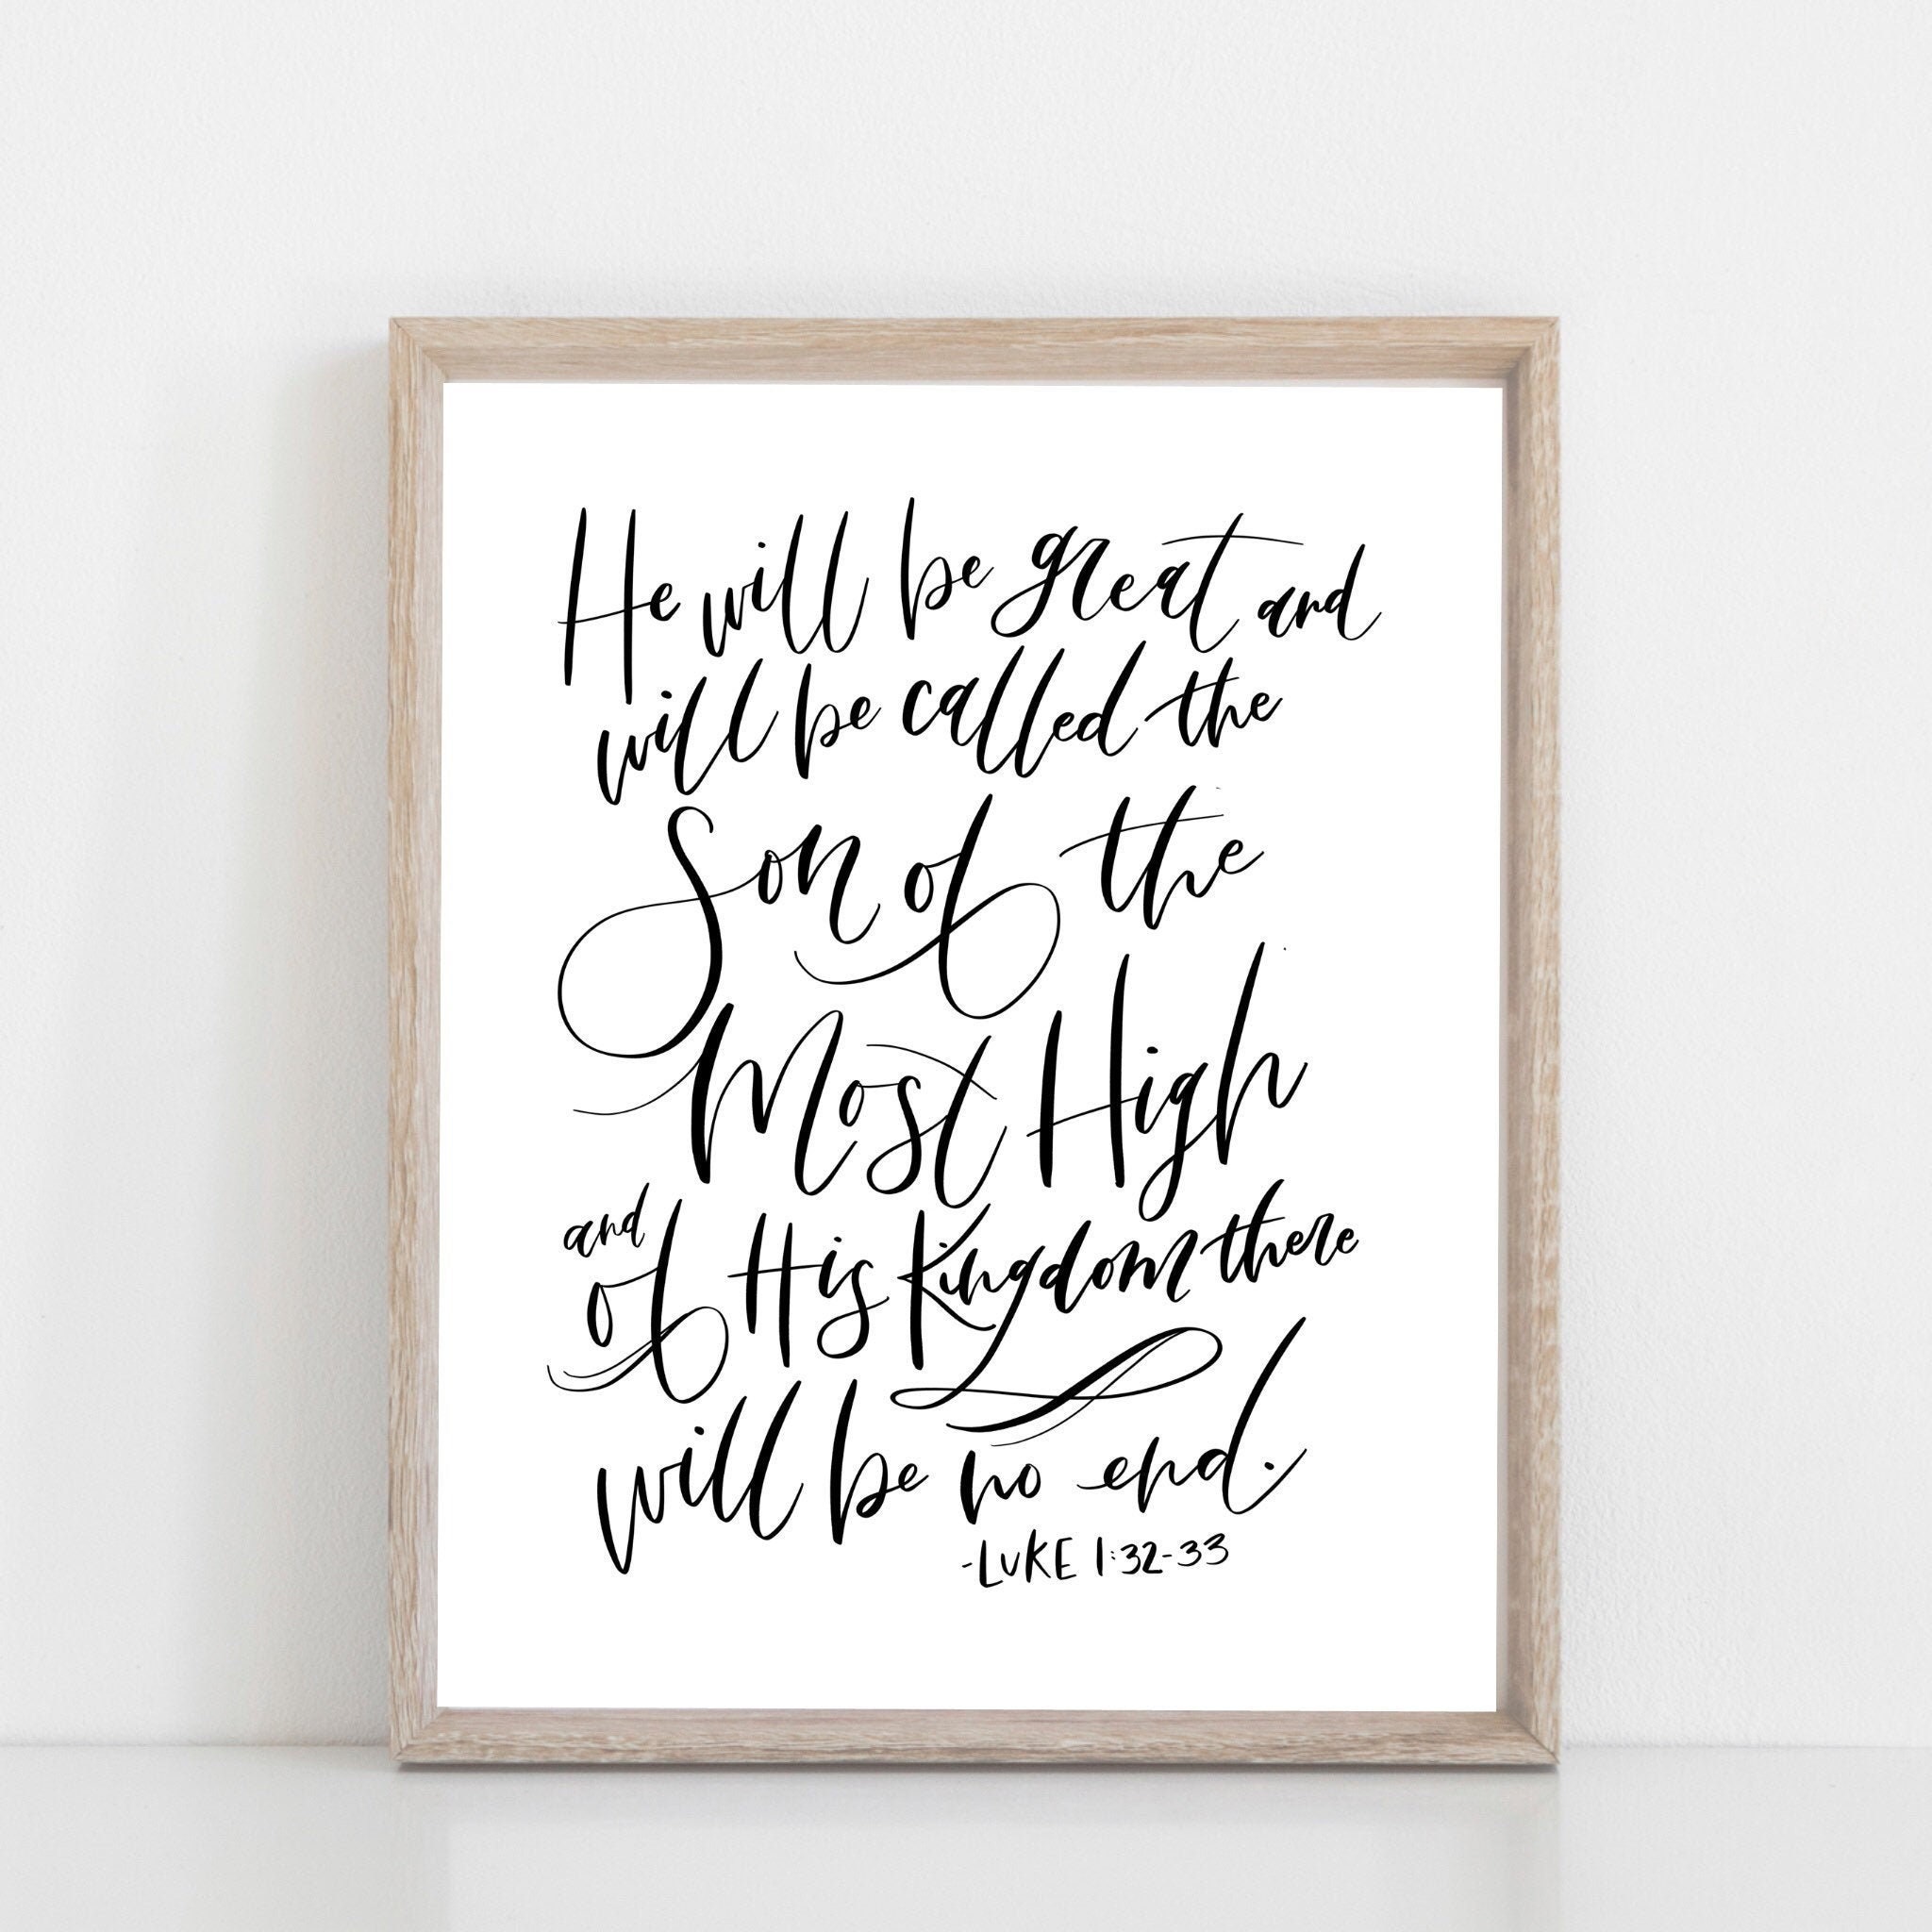 He will be great and
will be called the
Son of the
Most High
and
of His Kingdom there
will be no end.
-LUKE 1:32-33